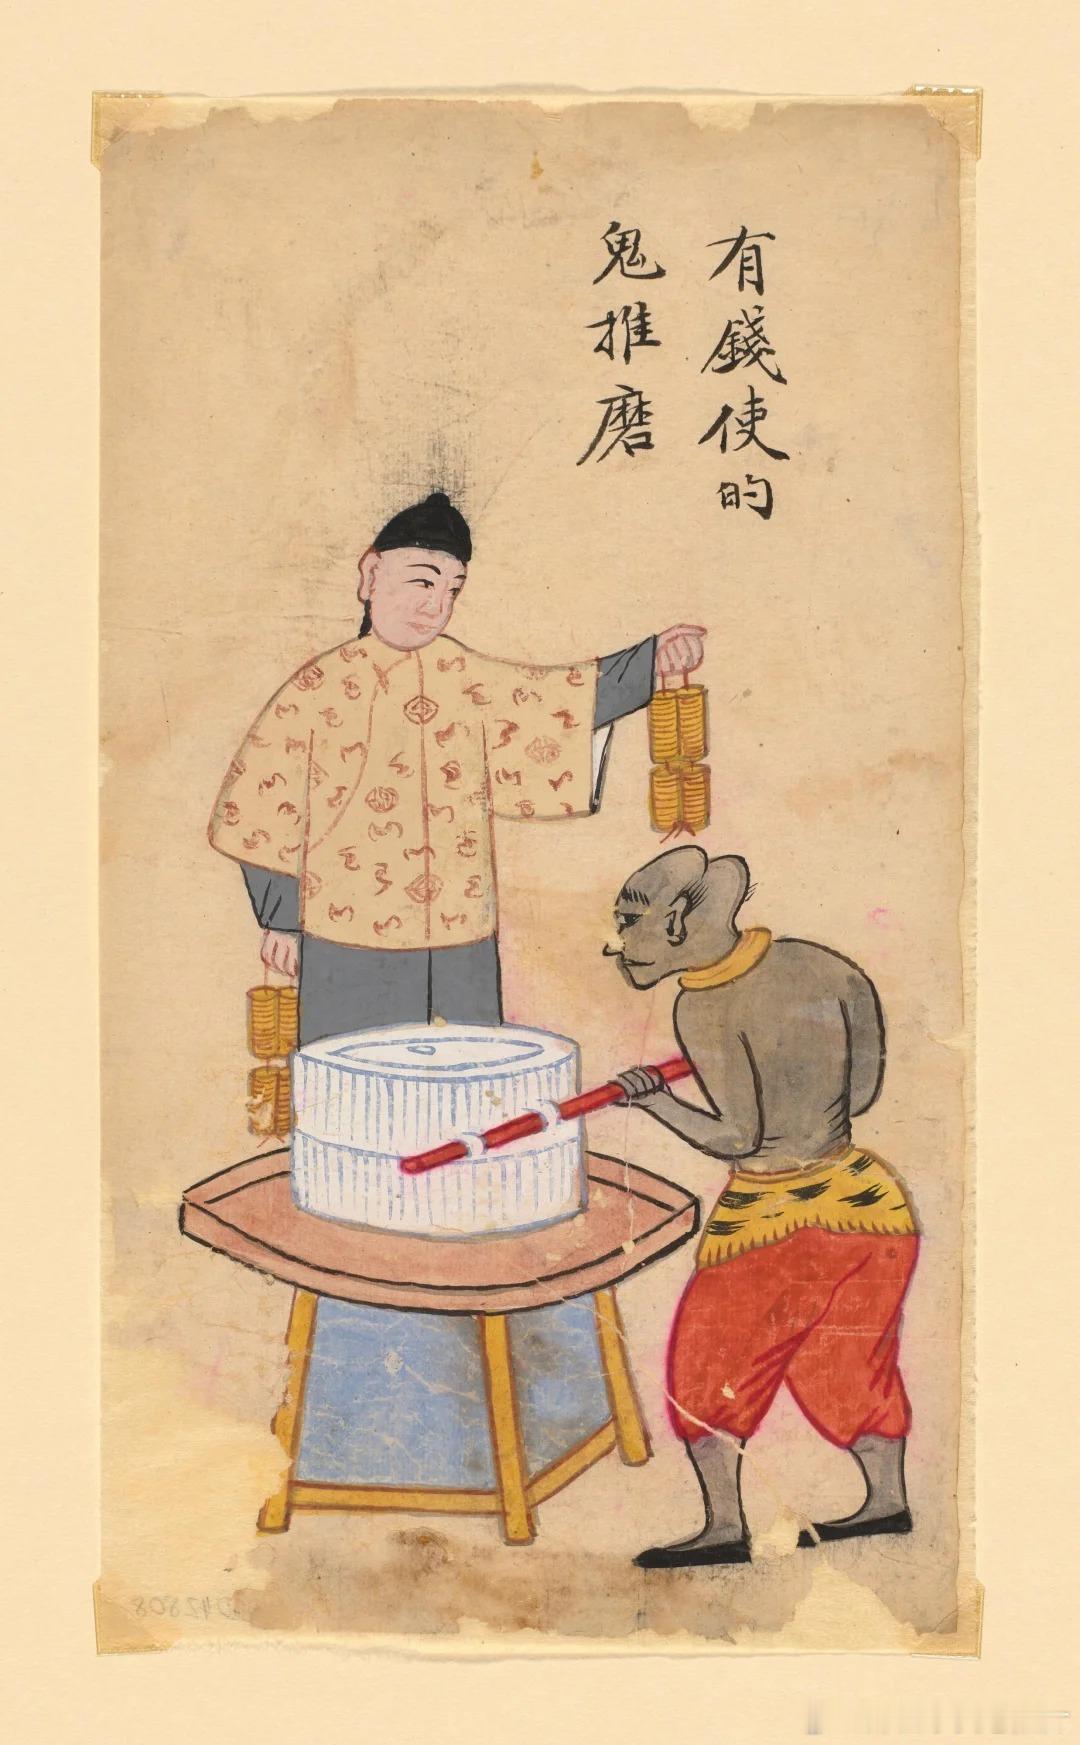 有錢使的
鬼推磨
D42808